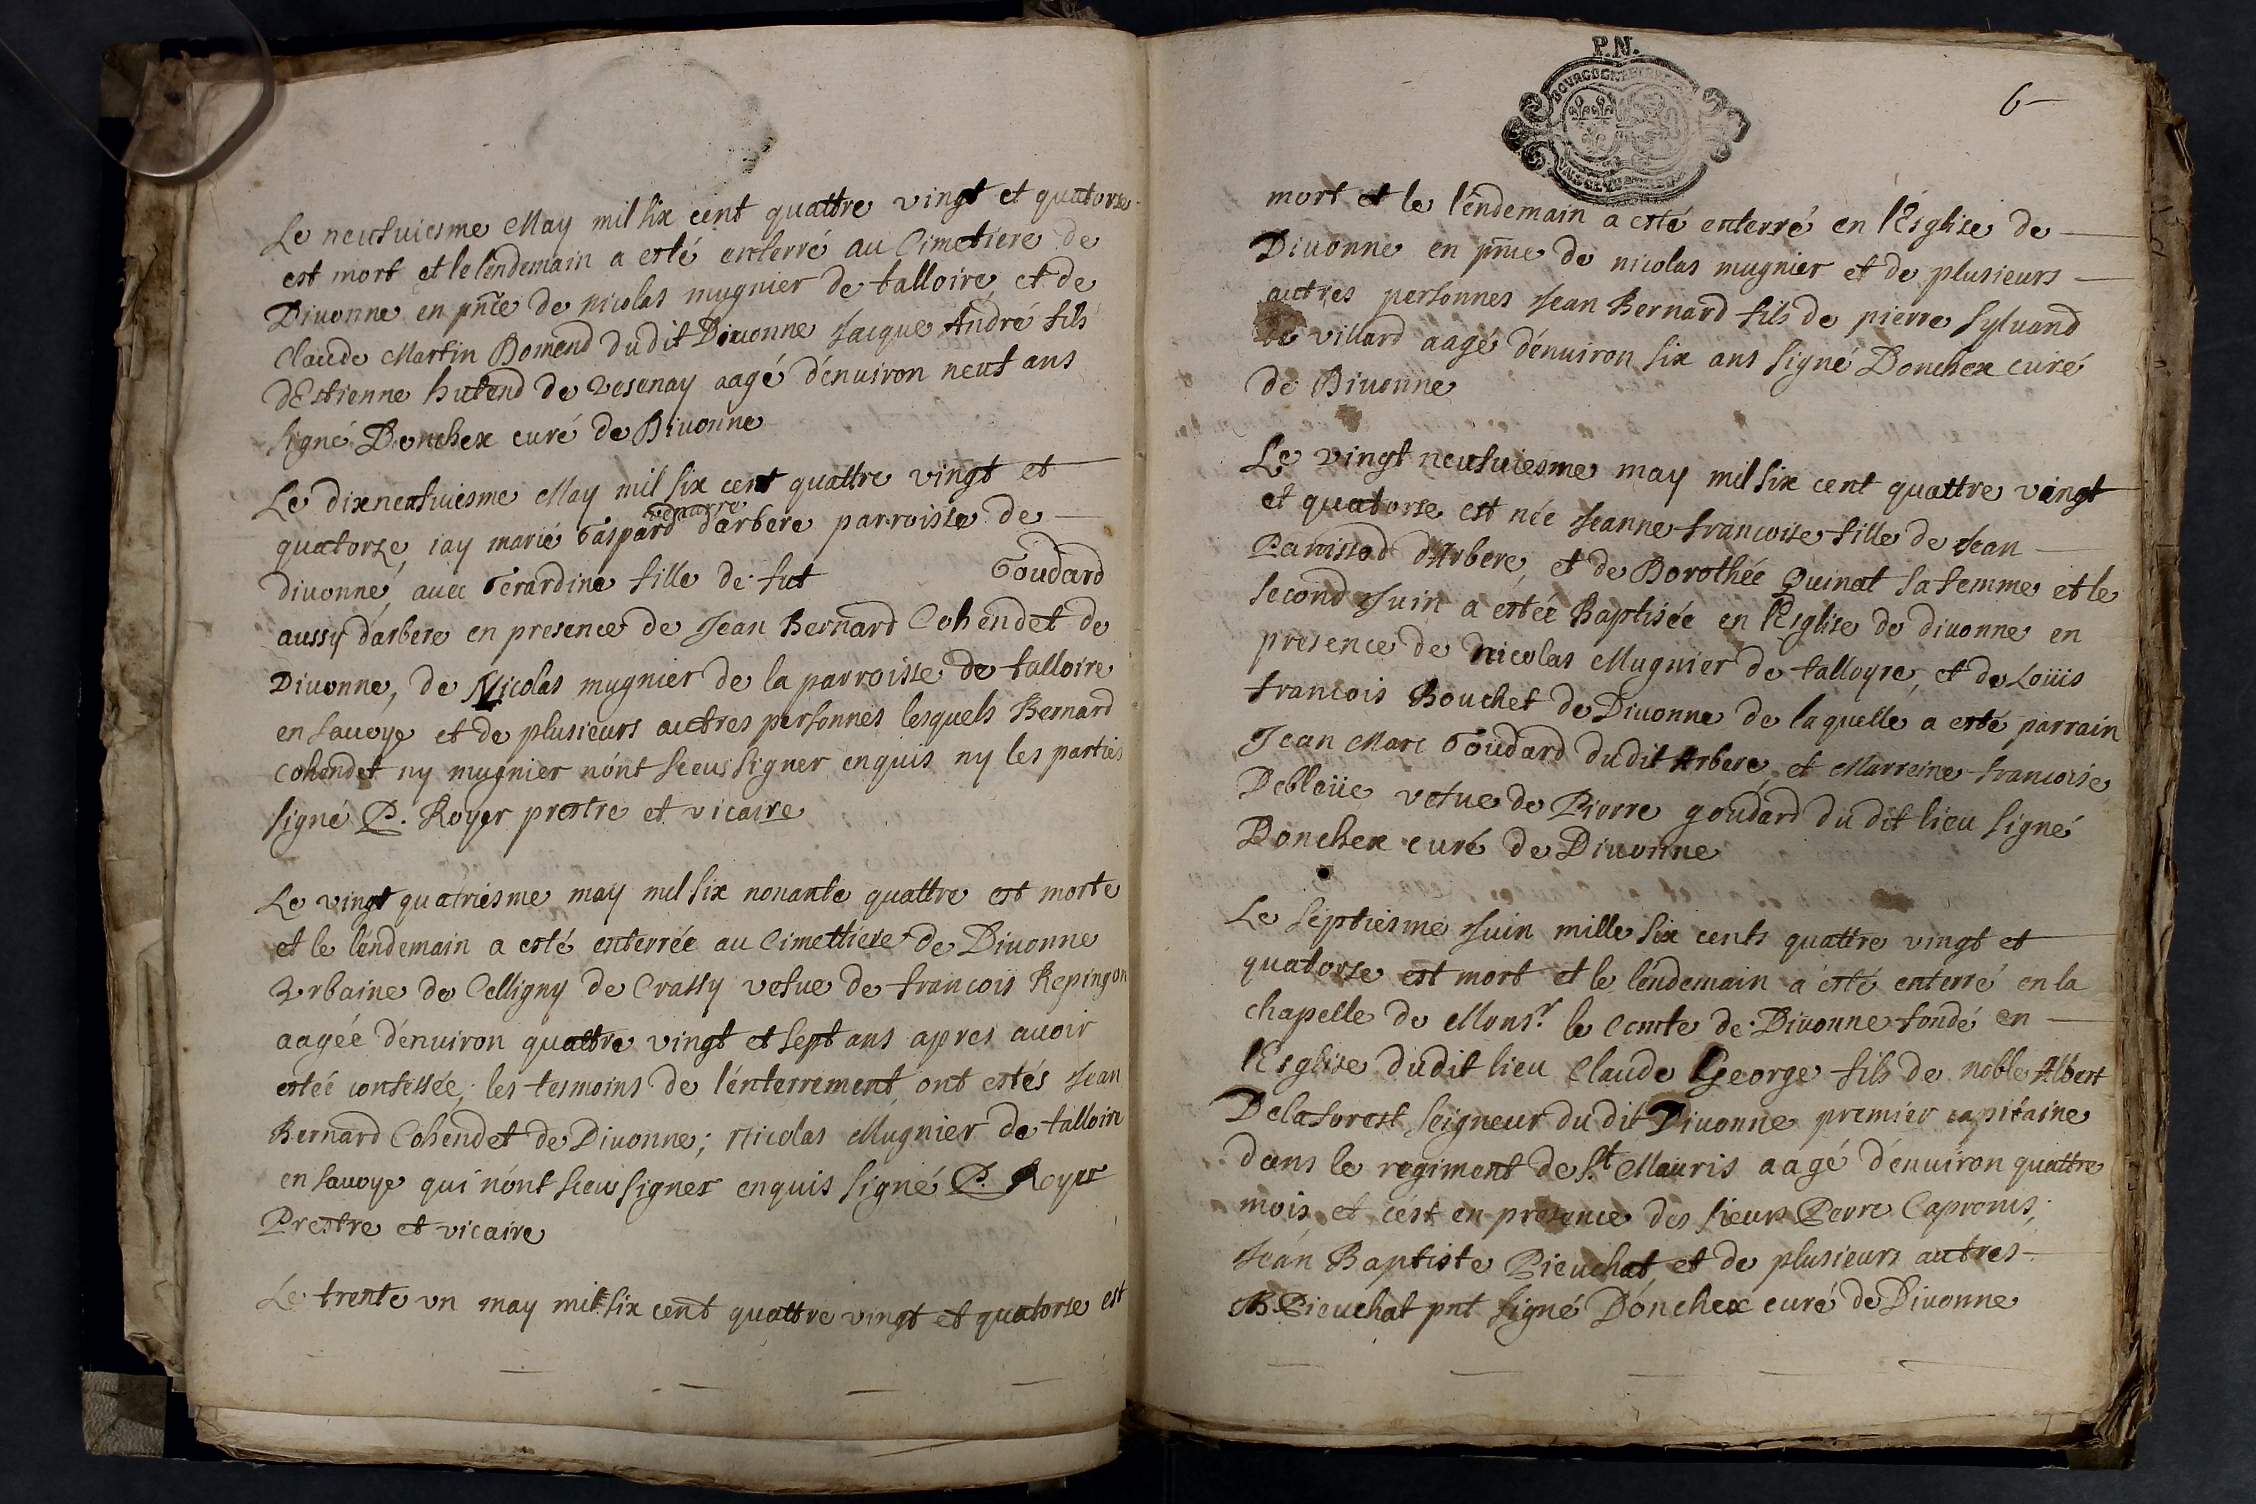 Le neufuiesme May mil six cent quattre vingt et quatorze
est mort et le lendemain a esté enterré au Cimetiere de
Diuonne en pnce de nicolas mugnier de talloire et de
Claude Martin Bomend dudit Diuonne Jacque André fils
d'Estienne hutend de Vesenay aagé d'enuiron neuf ans
signé Donchex curé de Diuonne
Le dixneufuiesme May mil six cent quattre vingt et
quatorze, iay marié Gaspard d'arbere parroisse de
diuonne, auec Gerardine fille de fut Goudard
aussy d'arbere en presence de Jean Bernard Cohendet de
Diuonne, de Nicolas mugnier de la parroisse de talloire
en sauoye et de plusieurs autres personnes lesquels Bernard
Cohendet ny mugnier n'ont sceu signer enquis ny les parties
signé P. Royer prestre et vicaire
Le vingt quatriesme may mil six nonante quattre est morte
et le lendemain a esté enterrée au Cimettiere de Diuonne
Vrbaine de Celligny de Crassy vefue de francois Repingon
aagée d'enuiron quattre vingt et sept ans apres auoir
estée confessée, les tesmoins de l'enterrement ont estés Jean
Bernard Cohendet de Diuonne; Nicolas Mugnier de talloire
en sauoye qui n'ont sceu signer enquis signé P. Royer
Prestre et vicaire
Le trente vn may mil six cent quattre vingt et quatorse est
P.N.
6
mort et le l'endemain a esté enterré en l'Esglise de
Diuonne en pnce de nicolas mugnier et de plusieurs
autres personnes Jean Bernard fils de pierre syluand
de villard aagé d'enuiron six ans signé Donchex curé
de Diuonne
Le vingt neufuiesme may mil six cent quattre vingt
et quatorse est née Jeanne francoise fille de Jean
Panissod d'Arbere, et de Dorothée Quinat sa femme et le
second Juin a estée Baptisée en l'Esglise de diuonne en
presence de Nicolas Mugnier de talloyre, et de Loüis
francois Bouchet de Diuonne de laquelle a esté parrain
Jean Marc Goudard dudit Arbere, et Marreine francoise
Debleüe vefue de Pierre goudard dudit lieu signé
Donchex curé de Diuonne
Le septiesme Juin mille six cents quattre vingt et
quatorse est mort et le l'endemain a esté enterré en la
chapelle de Monsr. le Comte de Diuonne fondé en
l'Esglise dudit lieu Claude George fils de noble Albert
Delaforest seigneur dudit Diuonne premier capitaine
dans le regiment de St. Mauris aagé d'enuiron quattre
mois et c'est en presence des sieurs Perre Capronis,
Jean Baptiste Pieuchat et de plusieurs autres
B. Pieuchat pnt signé Donchex curé de Diuonne